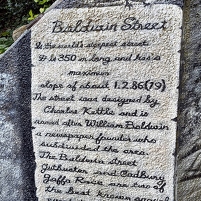 Baldwin Street
Is the world's steepest street
It is 350 m long and has a
maximum
slope of about 1:2.86 (19)
The street was designed by
Charles Kettle and is
named after William Baldwin
a newspaper founder who
subdivided the area.
The Baldwin Street
Gutbuster and Cadbury
Jaffa Race are two of
the best known annual